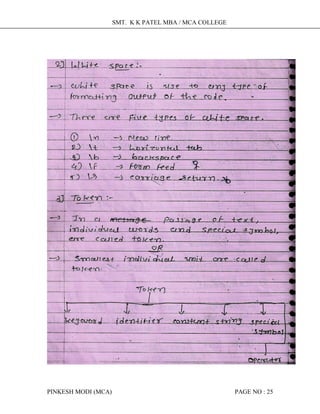 SMT. K K PATEL MBA / MCA COLLEGE
2) White space :-
→ white space is use to any type of
formatting output of the code.
→ There are five types of white space.
① \n → New line
2) \t → horizontal tab
3) \b → backspace
4) \f → form feed
5) → carriage return.
3] Token :-
→ In a message passage of text,
individual words and special symbol,
are called token.
OR
→ Smallest individual unit are called
token.
Token
keyword identifier constant string special
symbol
operator
PINKESH MODI (MCA) PAGE NO : 25